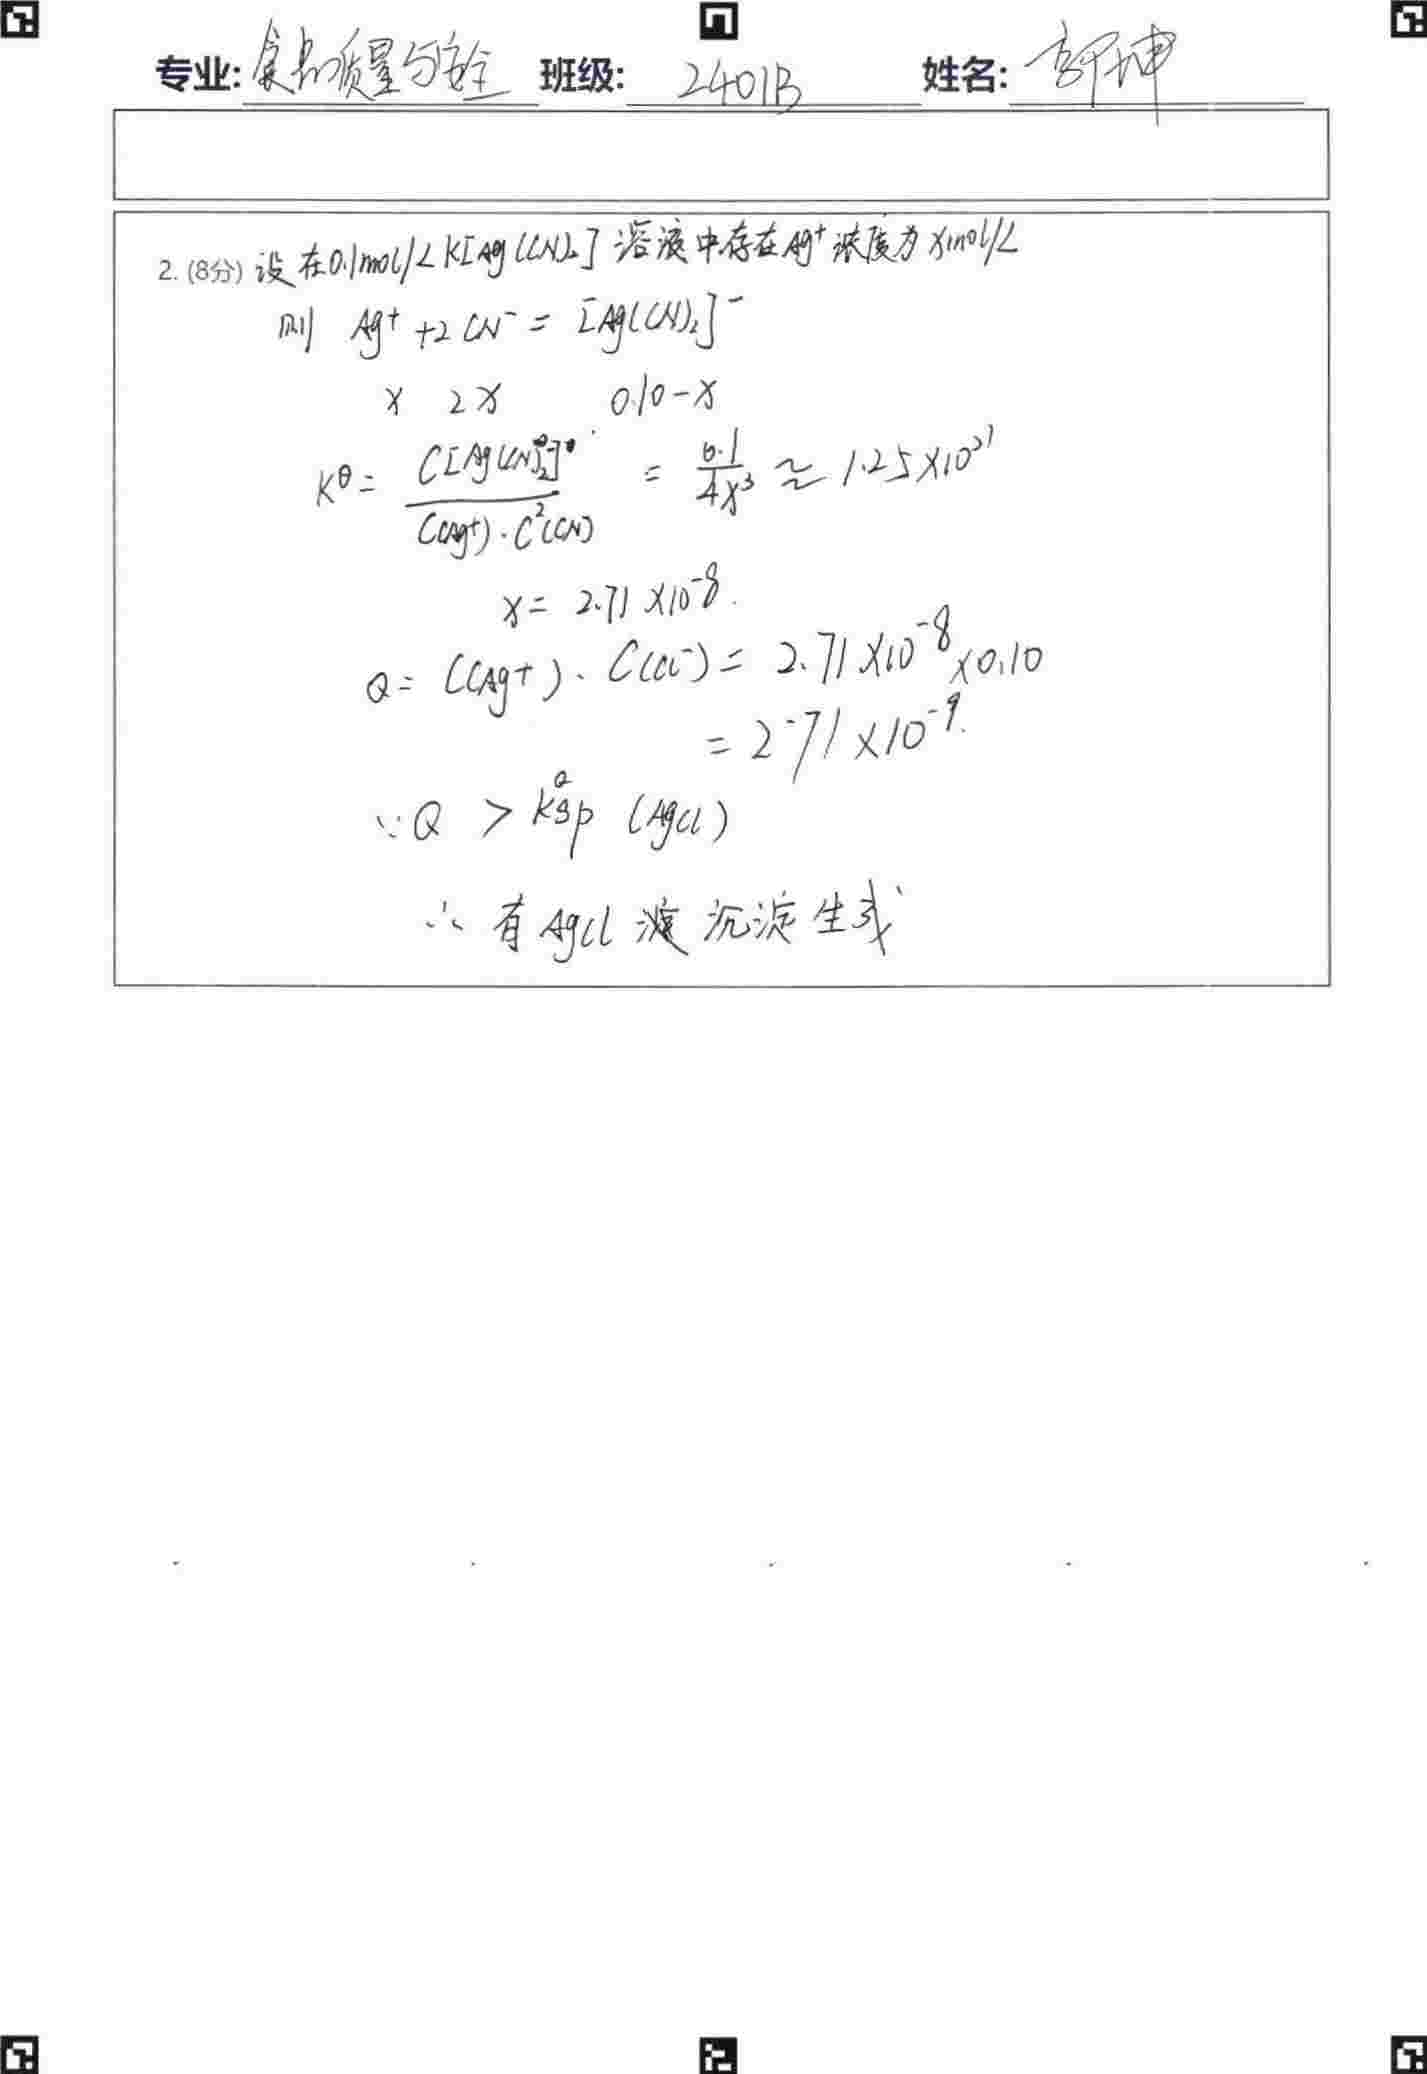 专业: 食品质量与安全 班级: 2401B 姓名: 郭坤
2. (8分) 设在0.1mol/L K[Ag(CN)₂] 溶液中存在Ag⁺浓度为xmol/L
则 Ag⁺ + 2CN⁻ = [Ag(CN)₂]⁻
x 2x 0.10-x
K^θ = C[Ag(CN)₂]⁻ / C(Ag⁺)·C²(CN) = 0.1/4x³ ≈ 1.25×10²¹
x = 2.71×10⁻⁸.
Q = C(Ag+)·C(Cl⁻) = 2.71×10⁻⁸×0.10
= 2.71×10⁻⁹.
∵Q > K^θsp (AgCl)
∴ 有AgCl 沉淀生成